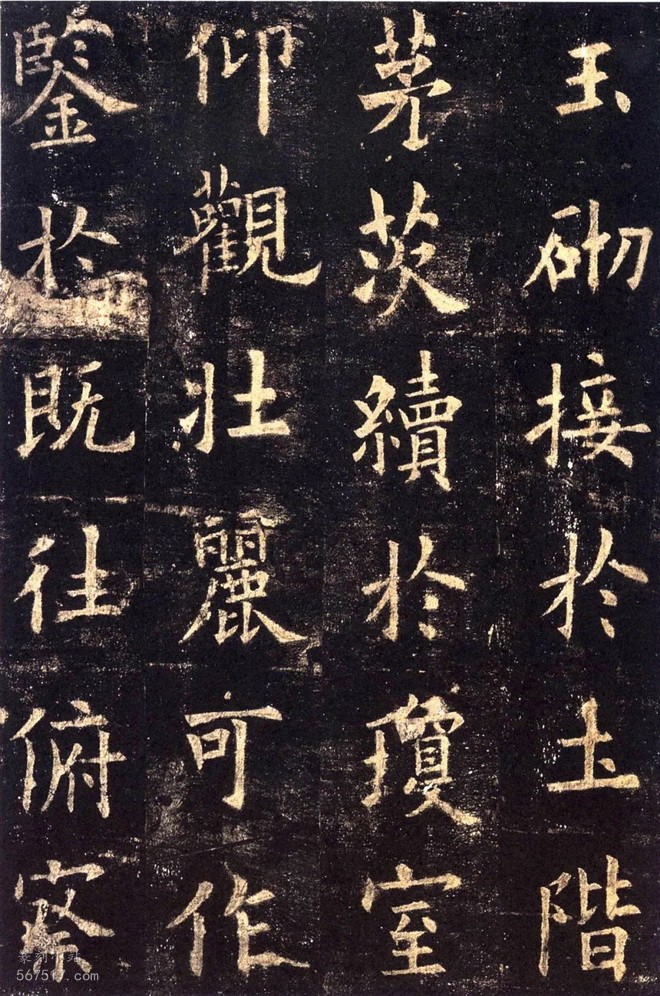 玉砌接於土階
茅茨續於瓊室
仰觀壯麗可作
鑒於既往俯察
篆刻小站
567517.com